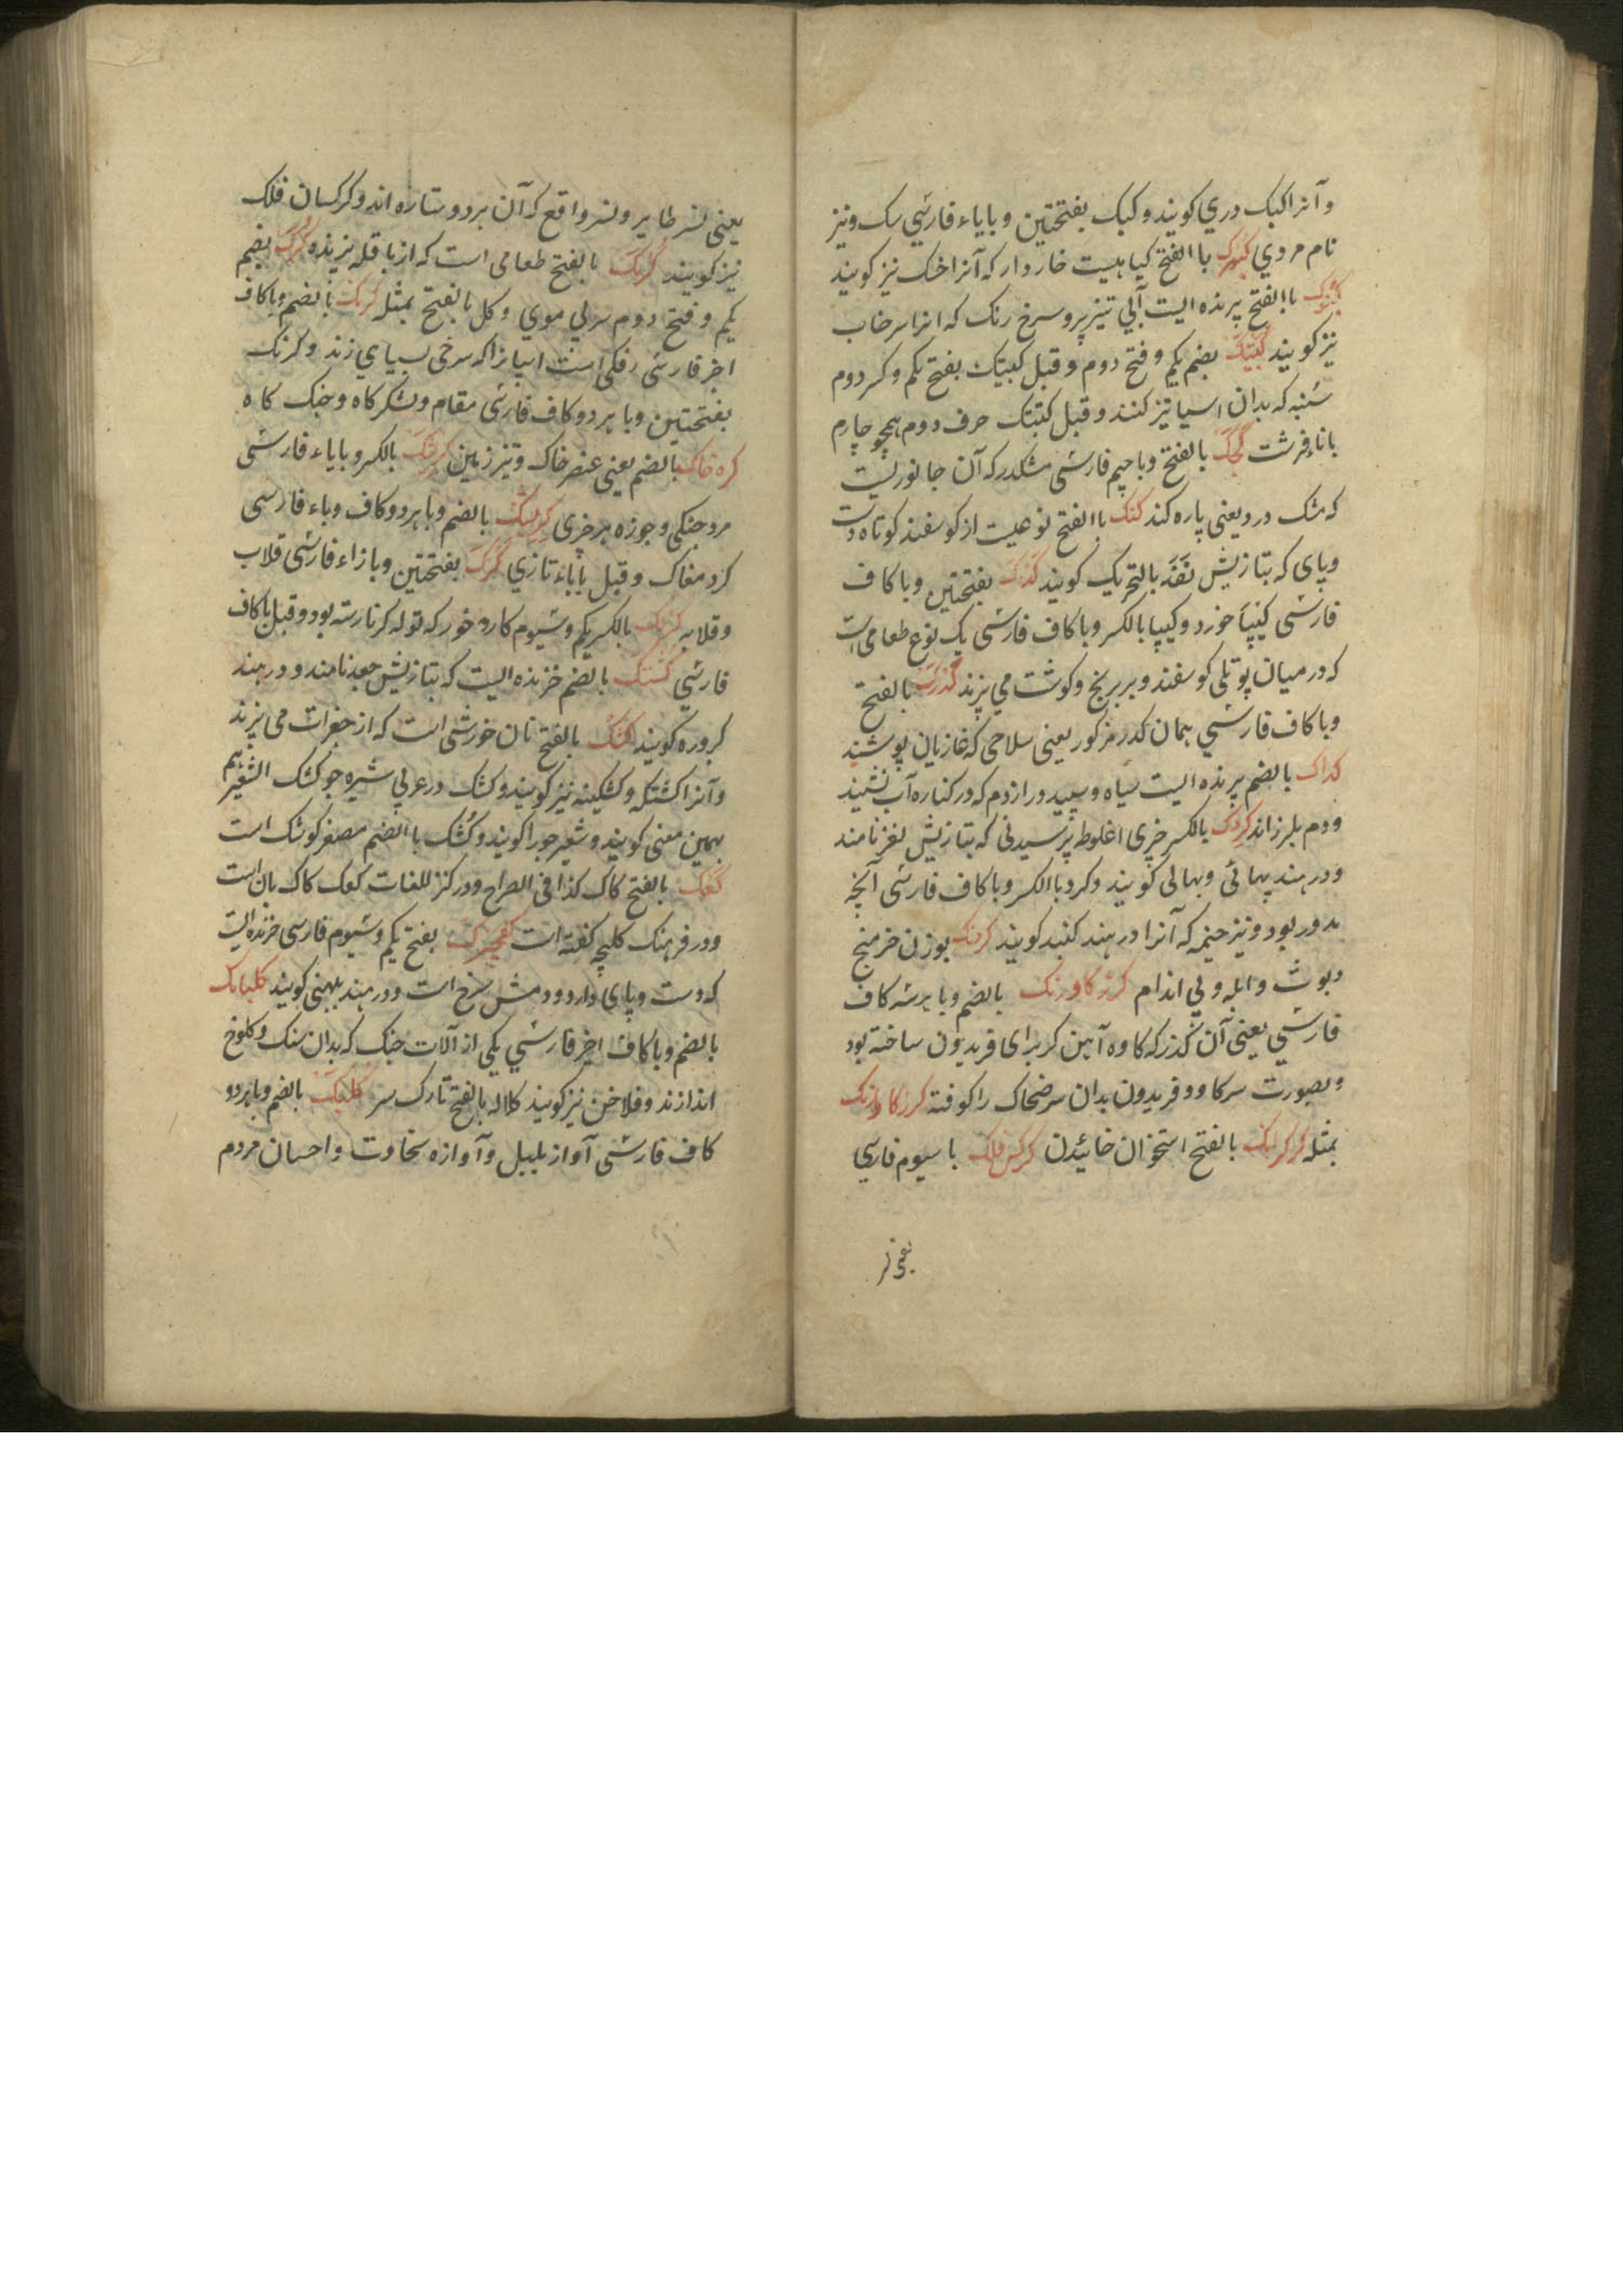 وآنرا کبک دري کویند وکبک بفتحتین وبا یاء فارشي سک ونیز
نام مردي باالفتح کیاهیست خاردار که آنرا خسک نیز کویند
باالفتح پرنده الیست آبي تیز پر وسرخ رنک که انرا سرخاب
نیز کویند بضم یکم وفتح دوم وقبل کبیتک بفتح یکم وکسر دوم
سنبه که بدان اسیا تیز کنند وقبل حرف دوم همچو چارم
بالفتح وبا جیم فارشی مشکدر که آن جانوریست
که مشک درد یعنی پاره کند کنک باالفتح نوعیست از کوسفند کوتاه دست
وپای که بتازیش نقد بالتحریک کویند کدک بفتحتین وبا کاف
فارشی کیپا خورد وکیپا بالکسر وبا کاف فارشی یک نوع طعامی است
که در میان پوتلی کوسفند وبر برنج وکوشت می پزند بالفتح
وبا کاف فارشي همان کدر مذکور یعنی سلاحی که غازیان پوشند
کداک بالضم پرنده الیست سیاه وسپید دراز دم که در کناره آب نشیند
ودم بلرزاند کردک بالکسر چیزی اغلوطه پرسیدنی که بتازیش لغز نامند
ودر هند پهائی وبهالی کویند وکرد باالکسر وبا کاف فارشی آنچه
مدور بود ونیز خیمه که آنرا در هند کنبد کویند کرنک بوزن خرمنج
وابله وبي اندام کرز کاورنک بالضم وبا هرسه کاف
فارشي یعنی آن کرز که کاوه آهن کر برای فریدون ساخته بود
وبصورت سر کاو وفریدون بدان سر ضحاک را کوفته کرز کاورنک
بمثله کرکرانک بالفتح استخوان خائیدن کرکس فلک با سیوم فارسي
یعنی نسر
یعنی نسر طایر ونسر واقع که آن هر دو ستاره اند وکرکسان فلک
نیز کویند کرنک بالفتح طعامی است که از باقله پزند وکرک بضم
یکم وفتح دوم سر بي موي وکل بالفتح بمثله کرنک بالضم وبا کاف
اخر فارشی رنکی است اسپانرا که سرخی بسیاهي زند وکرنک
بفتحتین وبا هر دو کاف فارشی مقام ولشکرکاه وجنک کاه
کره خاک بالضم یعنی عنصر خاک ونیز زمین بالکسر وبا یاء فارشی
مرد جنکی وجوزه هر چیزی بالضم وبا هر دو کاف وباء فارسی
کرد مغاک وقبل باباء تازي کزک بفتحتین وبا زاء فارشی قلاب
وقلابه بالکسر یکم وسیوم کارد خور که توله کرنا رسته بود وقبل با کاف
فارشي کستک بالضم خزنده الیست که بتازیش جعد نامند ودر هند
کروره کویند کشک بالفتح نان خورشی است که از جغرات می پزند
وآنرا کشتکه وکشکینه نیز کویند وکشک در عربي شیره جو کشک الشعیر هم
بهمین معنی کویند وشعیر جو را کویند وکشک باالضم مصغر کوشک است
کعک بالفتح کاک کذا فی الصراح ودر کنز اللغات کعک کاک نان است
ودر فرهنک کلیچه کفته است بفتح یکم وسیوم فارسی خزنده الیست
که دست وپای دارد ودمش سرخ است ودر هند بلهنی کویند کلبانک
بالضم وبا کاف اخیر فارشي یکی از آلات جنک که بدان سنک وکلوخ
اندازند وفلاخن نیز کویند کلاله بالفتح تارک سر کلبانک بالضم وبا هر دو
کاف فارشی آواز بلبل وآوازه سخاوت واحسان مردم